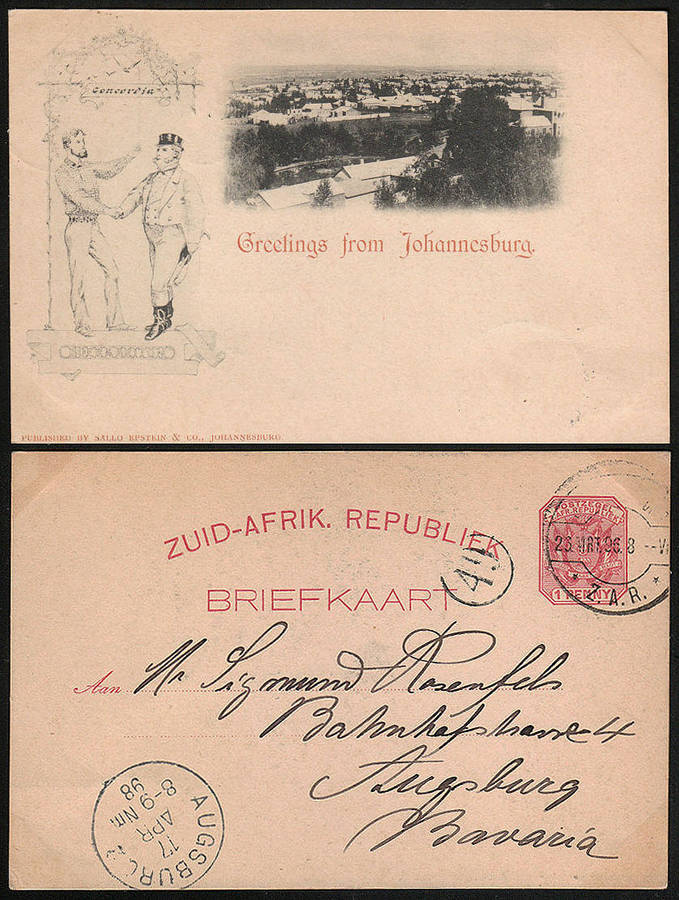 Concordia
Greetings from Johannesburg.
PUBLISHED BY SALLO EPSTEIN & CO., JOHANNESBURG
ZUID-AFRIK. REPUBLIEK
BRIEFKAART
POSTZEGEL
Z. AFR. REPUBLIEK
1 PENNY
Z.A.R.
49
Aan Mr Sigmund Rosenfels
Bahnhofstrasse 4
Augsburg
Bavaria
AUGSBURG
17
APR
8-9 Nm
98